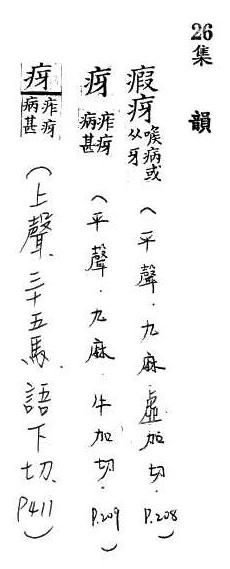 26集 韻
瘕疨喉病或从牙（平聲．九麻．虛加切．P.208）
疨痄疨病甚（平聲．九麻．牛加切．P.209）
疨痄疨病甚（上聲．三十五馬．語下切．P411）